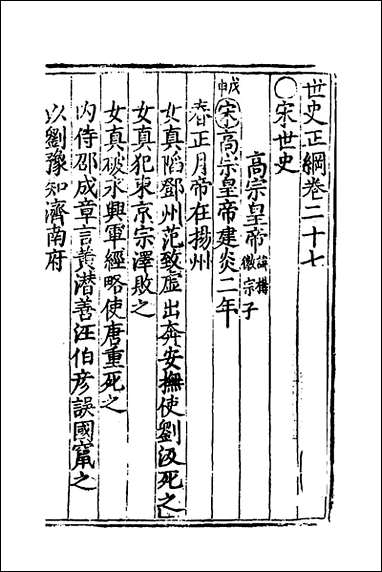 世史正綱卷二十七
○宋世史
高宗皇帝 諱構徽宗子
戊申 宋高宗皇帝建炎二年
春正月帝在揚州
女真陷鄧州范致虛出奔安撫使劉汲死之
女真犯東京宗澤敗之
女真破永興軍經略使唐重死之
内侍邵成章言黃潛善汪伯彥誤國竄之
以劉豫知濟南府